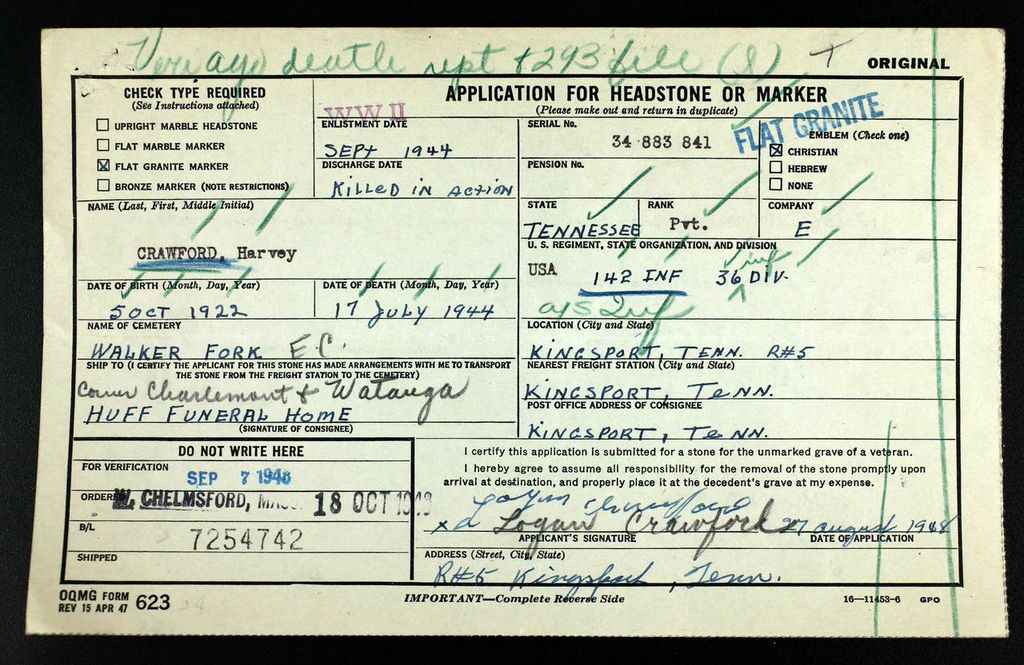 death rept + 293 file (8) T
ORIGINAL
CHECK TYPE REQUIRED
(See Instructions attached)
UPRIGHT MARBLE HEADSTONE
FLAT MARBLE MARKER
FLAT GRANITE MARKER
BRONZE MARKER (NOTE RESTRICTIONS)
WW II
ENLISTMENT DATE
SEPt 1944
DISCHARGE DATE
KILLED IN ACTION
APPLICATION FOR HEADSTONE OR MARKER
(Please make out and return in duplicate)
SERIAL No.
34 883 841
FLAT GRANITE
EMBLEM (Check one)
CHRISTIAN
HEBREW
NONE
PENSION No.
STATE
TENNESSEE
RANK
Pvt.
COMPANY
E
NAME (Last, First, Middle Initial)
CRAWFORD, Harvey
U. S. REGIMENT, STATE ORGANIZATION, AND DIVISION
USA 142 INF 36 Inf DIV.
DATE OF BIRTH (Month, Day, Year)
5 OCT 1922
DATE OF DEATH (Month, Day, Year)
17 July 1944
NAME OF CEMETERY
WALKER FORK E.C.
LOCATION (City and State)
KINGSPORT, TENN. R#5
SHIP TO (I CERTIFY THE APPLICANT FOR THIS STONE HAS MADE ARRANGEMENTS WITH ME TO TRANSPORT
THE STONE FROM THE FREIGHT STATION TO THE CEMETERY)
Corner Charlemont & Watauga
HUFF FUNERAL HOME
(SIGNATURE OF CONSIGNEE)
NEAREST FREIGHT STATION (City and State)
KINGSPORT, TENN.
POST OFFICE ADDRESS OF CONSIGNEE
KINGSPORT, TENN.
DO NOT WRITE HERE
FOR VERIFICATION
SEP 7 1948
ORDERED
W. CHELMSFORD, MASS. 18 OCT 1948
B/L
7254742
SHIPPED
I certify this application is submitted for a stone for the unmarked grave of a veteran.
I hereby agree to assume all responsibility for the removal of the stone promptly upon
arrival at destination, and properly place it at the decedent's grave at my expense.
Logan Crawford
Logan Crawford 27 august 1948
APPLICANT'S SIGNATURE
DATE OF APPLICATION
ADDRESS (Street, City, State)
R#5 Kingsport, Tenn.
OQMG FORM
REV 15 APR 47 623
IMPORTANT—Complete Reverse Side
16—11453-6 GPO